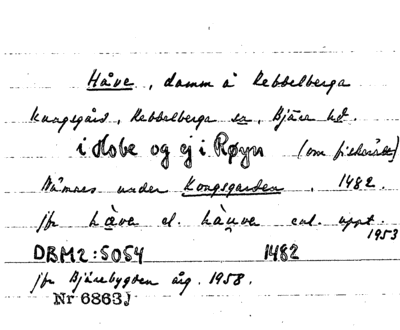 Håve, damm å Rebbelberga
kungsgård, Rebbelberga sn, Bjäre hd.
i Hobe og ej i Røyn (om fiskerätt)
Nämnes under Kongsgarden. 1482.
jfr hàve el. hàuve enl. uppt.
1953
DBM2:5054 1482
jfr Bjärebygden årg. 1958.
Nr 6863J